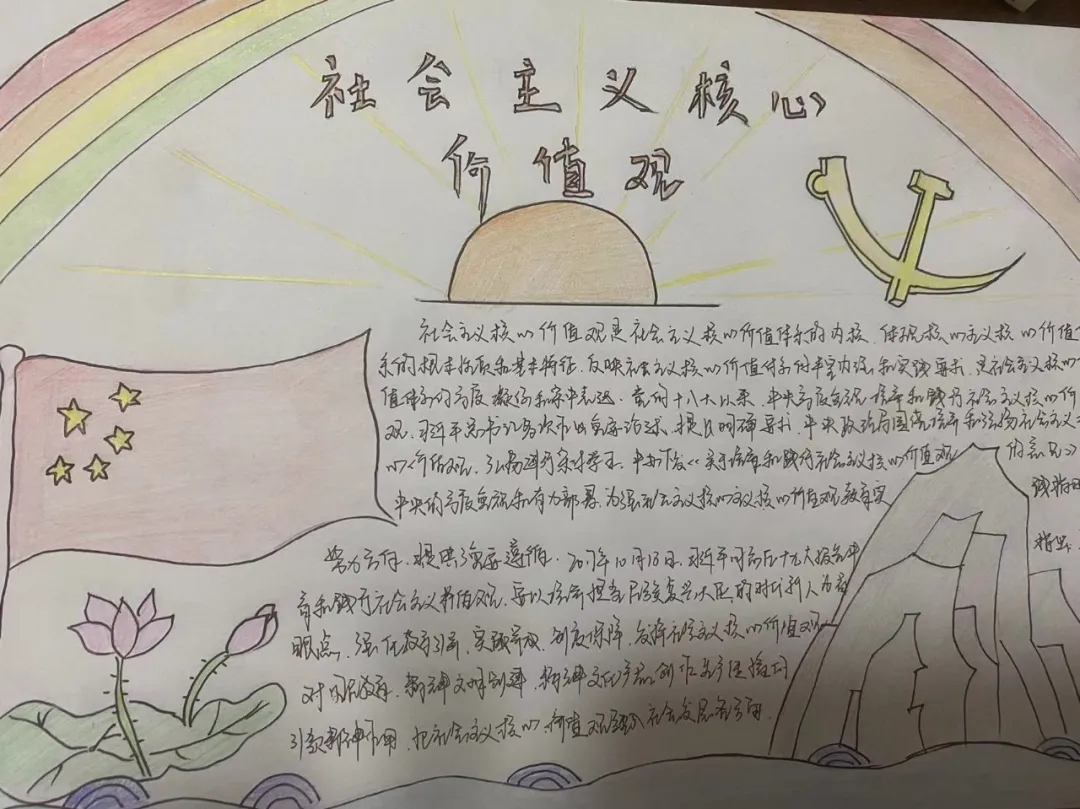 社会主义核心
价值观
社会主义核心价值观是社会主义核心价值体系的内核，体现核心主义核心价值
系的根本性质和基本特征，反映社会主义核心价值体系的丰富内涵和实践要求，是社会主义核心
值体系的高度凝练和集中表达。党的十八大以来，中央高度重视培育和践行社会主义核心价
观，习近平总书记多次作出重要论述、提出明确要求，中央政治局围绕培育和弘扬社会主义
心价值观、弘扬进行集体学习，中办下发《关于培育和践行社会主义核心价值观 的意见》
中央的高度重视和有力部署，为 社会主义核心主义核心价值观教育实
努力方向，提供了重要遵循。2017年10月18日，习近平同志在十九大报告中
育和践行社会主义 价值观。要以培养担当民族复兴大任的时代新人为着
眼点，强化教育引导、实践养成、制度保障，发挥社会主义核心价值观
对国民教育、精神文明创建、精神文化产品创作生产传播的
引领 作用，把社会主义核心价值观 社会发展各方面